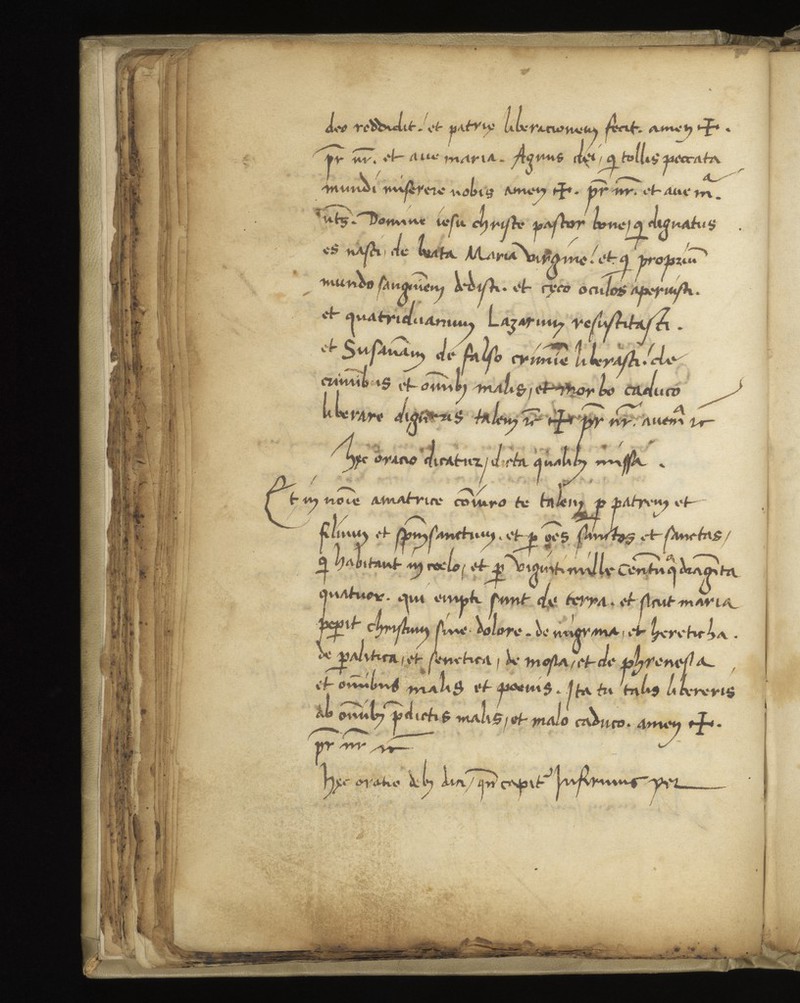 deo reddidit! et patrię liberacionem fecit. amen ✠.
pr̄ nr̄. et aue maria. Agnus dei, q̄ tollis peccata
mundi miserere nobis amen ✠. pr̄ nr̄. et aue mᵃ.
Domine iesu christe pastor bone, q̄ dignatus
es nasci, de beata Maria virgine! et q̄ propriū
mundo sanguinēm dedisti. et cęco oculos aperuisti.
et quatriduanum Lazarum resuscitasti.
et Susanām de falso crimīe liberasti! de
crimībus et omībꝫ malis, et morbo caduco
liberare digneris talem ⁊c̄ ✠ pr̄ nr̄. auemᵃ ⁊c
hęc oracio dicatur, dicta qualibꝫ missa.
Et in noīe amatrice cōiuro te talem ꝑ patrem et
filium et spm̄sanctum. et ꝑ oēs sanctos et sanctas,
q̄ habitant in coelo, et ꝑ viginti mille Centūqᵃdragīta
quatuor. qui empti sunt de terra. et sicut maria
peperit christum sine dolore. de migrana, et hereticha.
de ꝑalitica, et senetica, de mosa, et de phrenesia
et omībus malis et poenis. Ita tu talis libereris
ab omībꝫ p̄dictis malis, et malo caduco. amen ✠.
pr̄ nr̄ ⁊c
hęc oratio debꝫ dici, qn̄ capit᷑ Infirmus per